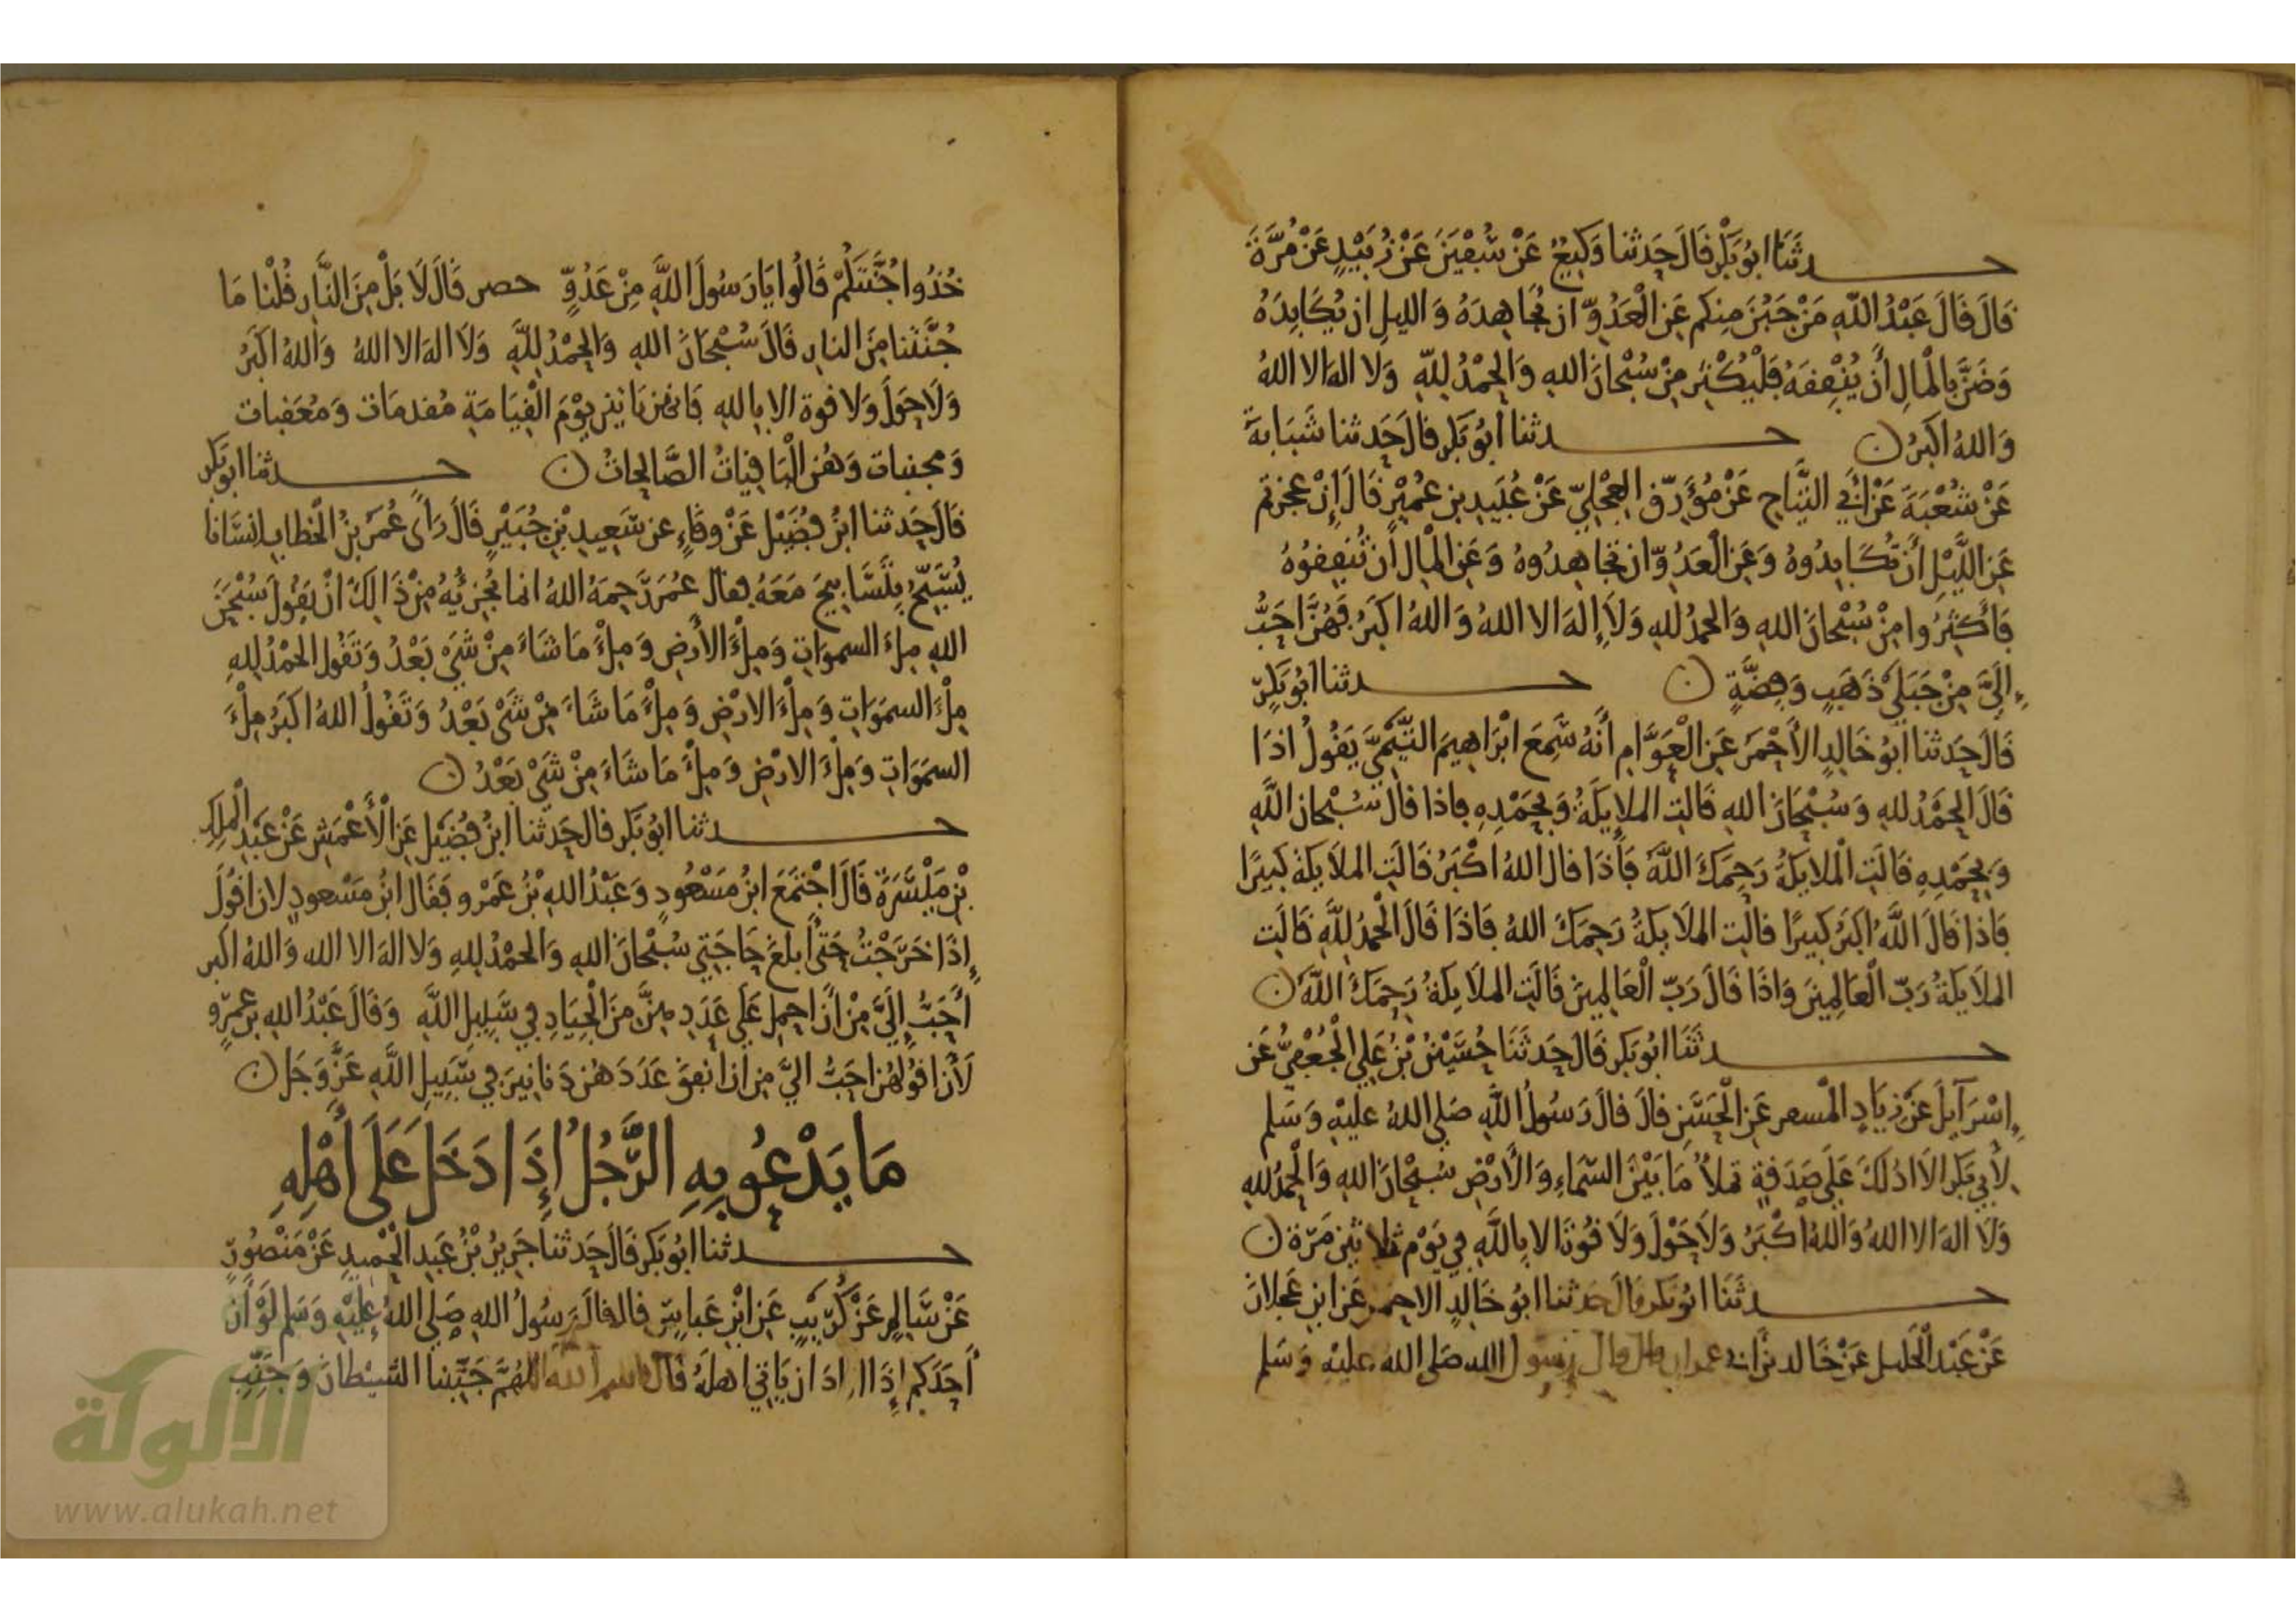 حدثنا ابو بَكْرٍ قَالَ حَدثنا وَكِيعٌ عَنْ سُفْيَنَ عَنْ زُبَيْدٍ عَنْ مُرَّةَ
قَالَ قَالَ عَبْدُ اللَّهِ مَنْ جَبُنَ مِنكم عَنِ الْعَدُوِّ ان يُجَاهِدَهُ وَالليلِ ان يُكَابِدَهُ
وَضَنَّ بِالْمالِ أَن يُنْفِقَهُ فَلْيُكْثِر مِنْ سُبْحَانَ اللهِ وَالْحَمْدُ لِلَّهِ وَلا اله الا اللهُ
وَاللهُ اكبرُ حدثنا ابُو بَكرٍ قالَ حَدثنا شَبَابةُ
عَنْ شُعْبَةَ عَنْ ابي التَّيَّاحِ عَنْ مُوَرِّقٍ العِجْلِيّ عَنْ عُبَيدِ بنِ عُمَيْرٍ قَالَ إِنْ عجزتم
عَنِ اللَّيْلِ أَنْ تُكَابِدُوهُ وَعَنِ الْعَدُوِّ ان تجَاهِدُوهُ وَعَنِ الْمالِ أَن تُنفِقُوهُ
فَأَكْثِرُوا مِنْ سُبْحانَ اللهِ وَالحمدُ للهِ وَلاَ إِلهَ الا اللهُ وَاللهُ اكبَرُ فَهُنَّ احَبُّ
إِلَيَّ مِنْ جَبَلَيْ ذَهَبٍ وَفِضَّةٍ حدثنا ابُو بَكرٍ
قَالَ حَدثنا ابُو خَالدٍ الأَحْمَرُ عَنِ الْعَوَّامِ أَنَّهُ سَمِعَ ابْرَاهِيمَ التَّيْمِيَّ يَقُولُ اذَا
قَالَ الحَمْدُ للهِ وَسُبْحَانَ اللهِ قَالتِ الملايكَةُ وَبِحَمْدِهِ فاذا قال سُبْحانَ اللَّهِ
وَبِحَمْدِهِ قَالَتِ الْملايكَةُ رَحِمَكَ اللَّهُ فَاذَا قال اللهُ اكْبَرُ قَالَتِ الملاَيكةُ كَبِيرًا
فَاذا قَالَ اللَّهُ اكبَرُ كَبِيرًا قالتِ الملاَيكةُ رَحِمَكَ اللهُ فَاذَا قَالَ الْحمدُ لِلَّهِ قَالَت
الملاَيكَةُ رَبّ الْعَالمِينَ وَاذَا قَالَ رَبّ الْعَالمِينَ قَالَتِ الملاَيكةُ رَحِمَكَ اللَّهُ
حدثَنَا ابُو بَكرٍ قَالَ حَدثَنَا حُسَيْنُ بْنُ عَلِي الْجُعْفِيُّ عَن
إِسْرَآيِلَ عَنْ زِيَادٍ الْمسعر عَنِ الْحَسَنِ قالَ قالَ رَسُولُ اللَّهِ صَلى اللهُ عليْهِ وَسَلم
لأبِي بَكر الاَ ادُلكَ عَلَى صَدَقةٍ تملأُ مَا بَيْنَ السَّمَاءِ وَالأَرْضِ سُبْحَانَ اللهِ وَالْحمدُ للهِ
وَلاَ الهَ الا اللهُ وَاللهُ اكْبَرُ وَلاَ حَوْلَ وَلاَ قُوةَ الا بِاللَّهِ فِي يَوْمٍ ثلاثينَ مَرّةً
حدثَنَا ابُو بَكر قَالَ حَدثنا ابُو خَالدٍ الاحمر عَن ابنِ عَجلانَ
عَنْ عَبْد الْجَليل عَنْ خَالد بن ابي عمران قال قال رَسُول الله صَلى الله عليْهِ وَسَلم
خُذُوا جُنَّتَكُمْ قَالُوا يَا رَسُولَ اللَّهِ مِنْ عَدُوٍّ حصر قَالَ لاَ بَلْ مِنَ النَّارِ قُلْنا مَا
جُنَّتنا مِنَ النارِ قَالَ سُبْحَانَ اللهِ وَالحَمْدُ لِلَّهِ وَلاَ اله الا اللهُ وَاللهُ اكبَرُ
وَلاَ حَولَ وَلا قوة الا بِاللهِ فَانهن يَاتين يوْمَ الْقِيَامَةِ مُقدمَات وَمُعَقبات
وَمجنبات وَهُن الْبَاقِيَاتُ الصَّالِحَاتُ حدثنا ابو بَكر
قَالَ حَدثنا ابنُ فُضَيْل عَنْ وِقَاءٍ عن سَعِيدِ بْنِ جُبَيْرٍ قَالَ رَأَى عُمَرُ بْنُ الْخَطابِ انسَانا
يُسَبّحُ بِتَسَابِيحَ مَعَهُ فقال عُمَرُ رَحِمَهُ اللهُ انما يُجْزِيهُ مِنْ ذَالِكَ انْ يَقُولَ سُبْحَنَ
اللهِ مِلءَ السموَاتِ وَمِلْءَ الأَرضِ وَمِلْءَ مَا شَاءَ مِنْ شَيْ بَعْدُ وَتَقُول الحَمْدُ للهِ
مِلْءَ السمَوَاتِ وَمِلْءَ الارْضِ وَمِلْءَ مَا شَاءَ مِنْ شَيْ بَعْدُ وَتَقُولُ اللهُ اكبَرُ مِلْءَ
السمَوَاتِ وَمِلْءَ الارْضِ وَمِلْءَ مَا شَاءَ مِنْ شَيْ بَعْدُ
حدثنا ابُو بَكر قال حَدثنا ابنُ فُضَيْلٍ عَنِ الْأَعْمَشِ عَنْ عَبْدِ الْملِكِ
بْنِ مَيْسَرَةَ قَالَ اجْتَمَعَ ابنُ مَسْعُودٍ وَعَبْدُ اللهِ بْنُ عَمْرو فَقَال ابنُ مَسْعودٍ لان اقُولَ
إِذَا خَرَجْتُ حَتى ابلُغَ حَاجَتِي سُبْحَانَ اللهِ وَالحمْدُ للهِ وَلا اله الا الله وَاللهُ اكبر
أَحَبُّ إِلَيَّ مِنْ أَنْ احمِل عَلَى عَدَدِهِنَّ مِنَ الْجِيَادِ فِي سَبِيلِ اللَّهِ وَقَالَ عَبْدُ اللهِ بنُ عمرو
لَأَنْ اقُولهُنَّ احَبُّ الِيَّ مِن ان انفِقَ عَدَدَهُن دَنانِيرَ فِي سَبِيلِ اللَّهِ عَزَّ وَجَل
مَا يَدْعُو بِهِ الرَّجُلُ إِذَا دَخَلَ عَلَى أَهْلِهِ
حدثنا ابُو بَكر قَالَ حَدثنا جَرِيرُ بْنُ عَبدِ الْحَمِيدِ عَنْ مَنْصُورٍ
عَنْ سَالمٍ عَنْ كُرَيبٍ عَنِ ابْنِ عَباسٍ قال قالَ رَسُولُ اللهِ صَلى اللهُ عَلَيْهِ وَسَلم لَوْ أَن
أَحَدَكم إِذَا ارَادَ ان يَاتي اهلَهُ قَالَ باسم الله اللهُمَّ جَنِّبنا الشيْطانَ وَجَنِّبِ
الألوكة
www.alukah.net